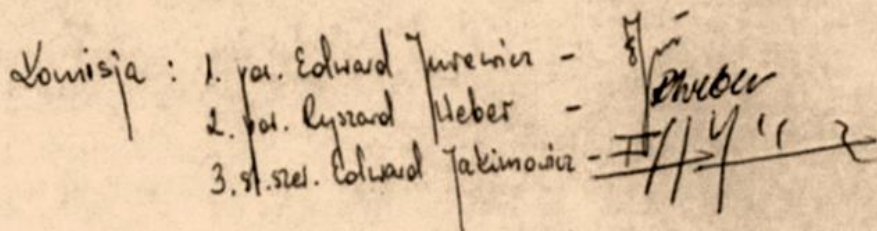 Komisja : 1. por. Edward Jurewicz -
2. por. Ryszard Weber - RWeber
3. st.szer. Edward Jakimowicz -